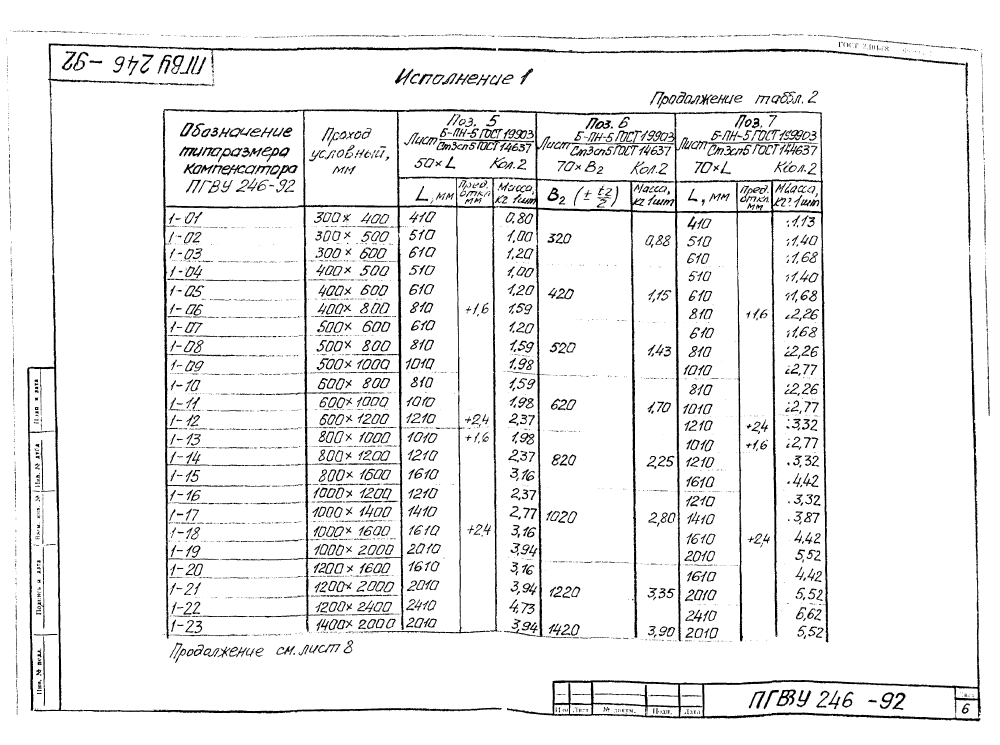 ГОСТ 2.104-68
ПГВУ 246 -92
Исполнение 1
Продолжение табл. 2
Обозначение типаразмера компенсатора ПГВУ 246-92
Проход условный, мм
Поз. 5
Лист Б-ПН-5 ГОСТ 19903 / Ст3сп5 ГОСТ 14637
50×L Кол.2
Поз. 6
Лист Б-ПН-5 ГОСТ 19903 / Ст3сп5 ГОСТ 14637
70×B2 Кол.2
Поз. 7
Лист Б-ПН-5 ГОСТ 199903 / Ст3сп5 ГОСТ 144637
70×L Кол.2
L, мм Пред. откл. мм Масса, кг 1шт B2 (± t2/2) Масса, кг 1шт L, мм Пред. откл. мм Масса, кг 1шт
1-01 300× 400 410 0,80 410 1,13
1-02 300× 500 510 1,00 320 0,88 510 1,40
1-03 300× 600 610 1,20 610 1,68
1-04 400× 500 510 1,00 510 1,40
1-05 400× 600 610 1,20 420 1,15 610 1,68
1-06 400× 800 810 +1,6 1,59 810 +1,6 2,26
1-07 500× 600 610 1,20 610 1,68
1-08 500× 800 810 1,59 520 1,43 810 2,26
1-09 500×1000 1010 1,98 1010 2,77
1-10 600× 800 810 1,59 810 2,26
1-11 600×1000 1010 1,98 620 1,70 1010 2,77
1-12 600×1200 1210 +2,4 2,37 1210 +2,4 3,32
1-13 800×1000 1010 +1,6 1,98 1010 +1,6 2,77
1-14 800×1200 1210 2,37 820 2,25 1210 3,32
1-15 800×1600 1610 3,16 1610 4,42
1-16 1000×1200 1210 2,37 1210 3,32
1-17 1000×1400 1410 2,77 1020 2,80 1410 3,87
1-18 1000×1600 1610 +2,4 3,16 1610 +2,4 4,42
1-19 1000×2000 2010 3,94 2010 5,52
1-20 1200×1600 1610 3,16 1610 4,42
1-21 1200×2000 2010 3,94 1220 3,35 2010 5,52
1-22 1200×2400 2410 4,73 2410 6,62
1-23 1400×2000 2010 3,94 1420 3,90 2010 5,52
Продолжение см. лист 8
Подп. и дата
Инв. № дубл.
Взам. инв. №
Подпись и дата
Инв. № подл.
Изм Лист № докум. Подп. Дата
ПГВУ 246 -92
Лист
6